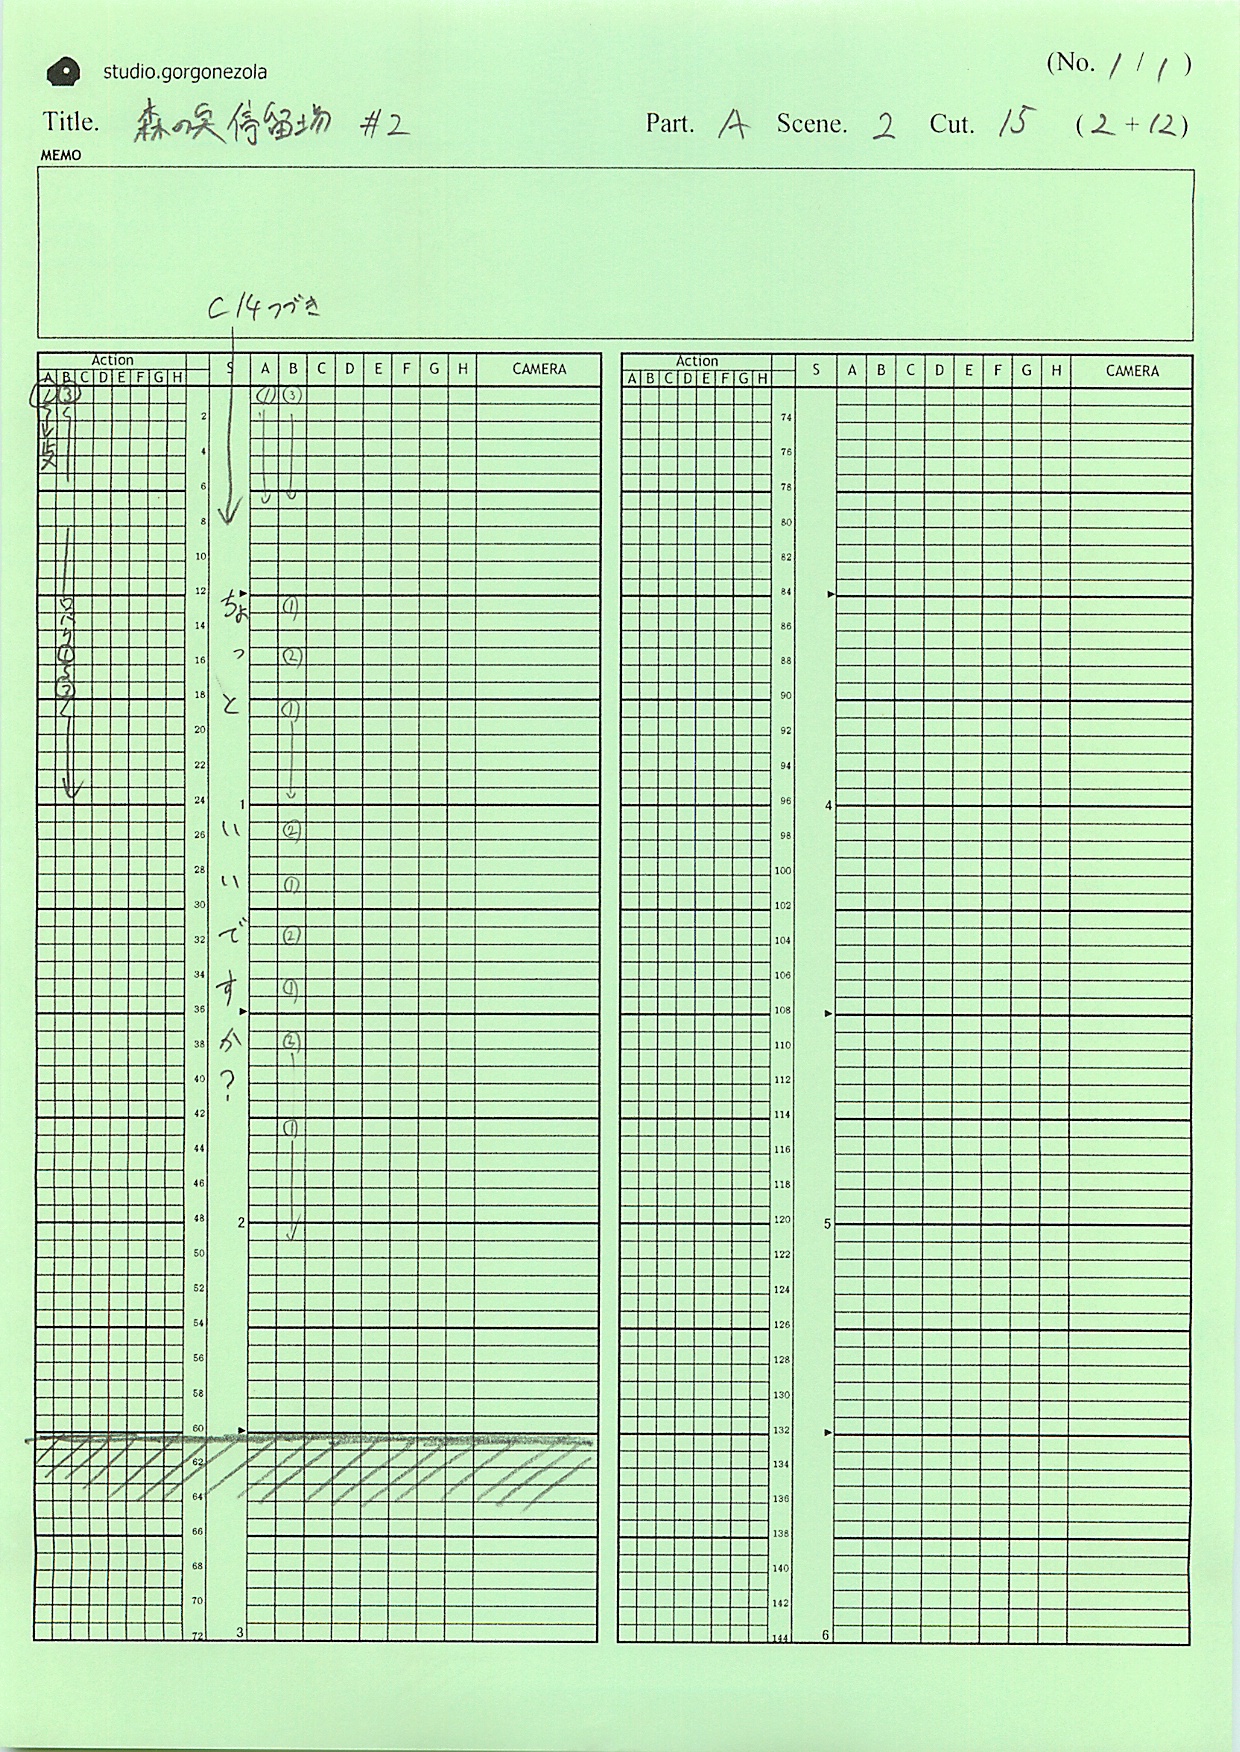 studio.gorgonezola
(No. 1 / 1 )
Title. 森の奥停留場 #2 Part. A Scene. 2 Cut. 15 (2 + 12)
MEMO
C14つづき
Action S A B C D E F G H CAMERA
A B C D E F G H
① ③ ① ③
2
4
6
8
10
12
ちょ ①
14
っ ②
16
①
18
③
と ①
20
22
24 1
い ②
26
い ①
28
30
で ②
32
34
す ①
36
か ②
38
?
40
42
①
44
46
48 2
50
52
54
56
58
60
62
64
66
68
70
72 3
Action S A B C D E F G H CAMERA
A B C D E F G H
74
76
78
80
82
84
86
88
90
92
94
96 4
98
100
102
104
106
108
110
112
114
116
118
120 5
122
124
126
128
130
132
134
136
138
140
142
144 6